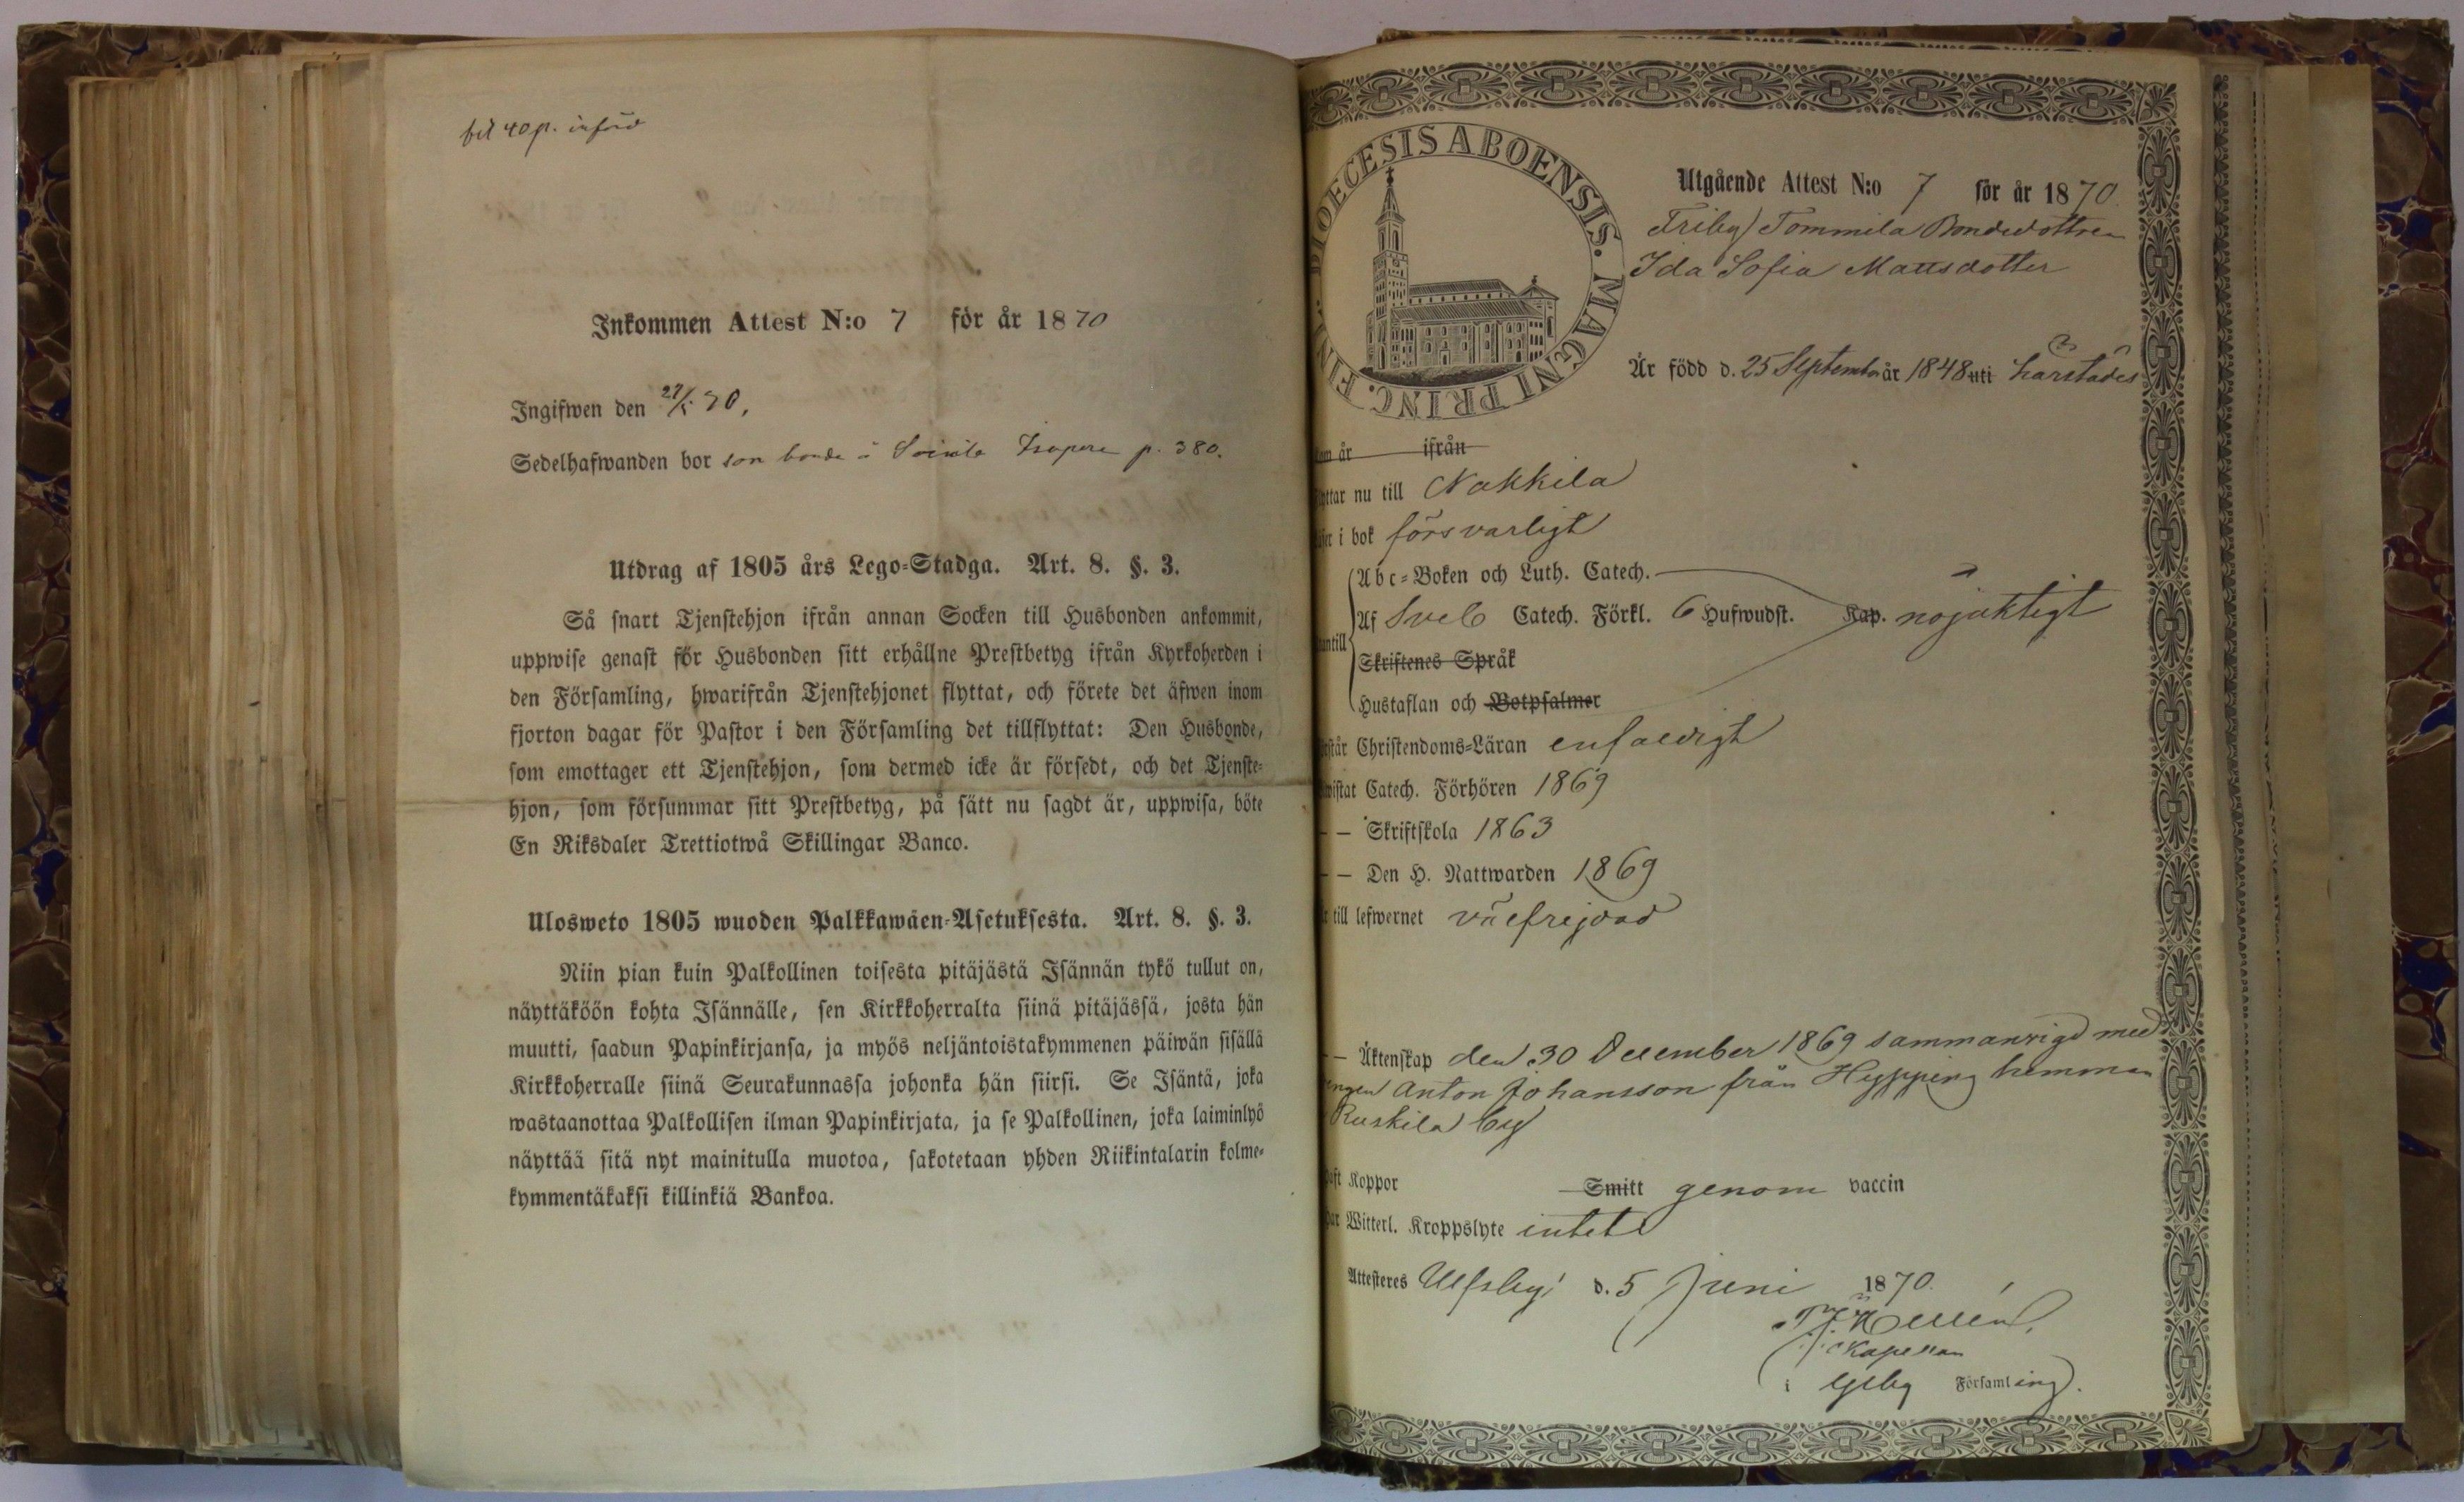 bet 40 p. införd
Inkommen Attest N:o 7 för år 1870
Ingifwen den 27/5 70.
Sedelhafwanden bor son bonde i p. 380.
Utdrag af 1805 års Lego-Stadga. Art. 8. §. 3.
Så snart Tjenstehjon ifrån annan Socken till Husbonden ankommit,
uppwise genast för Husbonden sitt erhållne Prestbetyg ifrån Kyrkoherden i
den Församling, hwarifrån Tjenstehjonet flyttat, och förete det äfwen inom
fjorton dagar för Pastor i den Församling det tillflyttat: Den Husbonde,
som emottager ett Tjenstehjon, som dermed icke är försedt, och det Tjenste-
hjon, som försummar sitt Prestbetyg, på sätt nu sagdt är, uppwisa, böte
En Riksdaler Trettiotwå Skillingar Banco.
Ulosweto 1805 wuoden Palkkawäen-Asetuksesta. Art. 8. §. 3.
Niin pian kuin Palkollinen toisesta pitäjästä Isännän tykö tullut on,
näyttäköön kohta Isännälle, sen Kirkkoherralta siinä pitäjässä, josta hän
muutti, saadun Papinkirjansa, ja myös neljäntoistakymmenen päiwän sisällä
Kirkkoherralle siinä Seurakunnassa johonka hän siirsi. Se Isäntä, joka
wastaanottaa Palkollisen ilman Papinkirjata, ja se Palkollinen, joka laiminlyö
näyttää sitä nyt mainitulla muotoa, sakotetaan yhden Riikintalarin kolme-
kymmentäkaksi killinkiä Bankoa.
DIOECESIS ABOENSIS. MAGNI PRINC. FINL.
Utgående Attest N:o 7 för år 1870.
Friby Tommila Bondedottren
Ida Sofia Mattsdotter
Är född d. 25 September år 1848 uti härstädes
år ifrån
nu till Nakkila
i bok försvarligt
Abc-Boken och Luth. Catech.
Af Sveb Catech. Förkl. 6 Hufwudst. Kap. nöjaktigt
Skriftenes Språk
Hustaflan och Botpsalmer
Christendoms-Läran enfaldigt
Catech. Förhören 1869
— Skriftskola 1863
— Den H. Nattwarden 1869
till lefwernet välfrejdad
— Äktenskap den 30 December 1869 sammanvigd med
Anton Johansson från Hypping hemman
Ruskila by
Koppor Smitt genom vaccin
Witterl. Kroppslyte intet
Attesteres Ulfsby d. 5 Juni 1870.
Kapellan
i Ulfsby Församling.